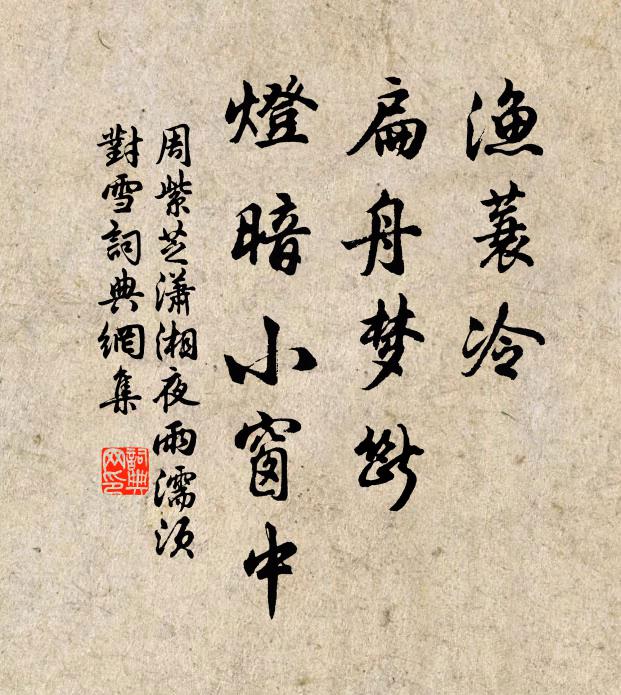 渔蓑冷
扁舟梦断
燈暗小窗中
周紫芝瀟湘夜雨濡须
對雪詞典網集
詞典
网印